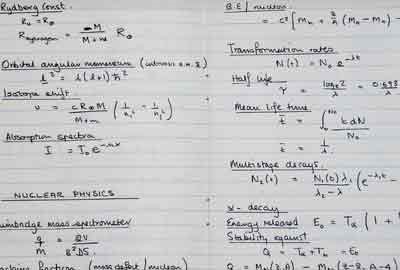 Rydberg Const.
R₀ = R∞
R_Hydrogen = M / M+m R∞
Orbital angular momentum
l² = l(l+1)ħ²
Isotope shift.
υ = cR∞M / M+m (1/n₁² - 1/n₂²)
Absorption spectra
I = I₀e^-nαx
NUCLEAR PHYSICS
Bainbridge mass spectrometer
q/M = 2V / B²DS
fraction (mass defect/nucleon)
B.E / nucleon
= c² [Mₙ + Z/A (M_H - Mₙ) -
Transformation rates
N(t) = N₀ e^-λt
Half life
τ = logₑ2 / λ = 0.693 / λ
Mean life time
t̄ = ∫₀^N₀ t dN / N₀
t̄ = 1/λ
Multistage decays.
N₂(t) = N₁(0)λ₁ / λ₂ - λ₁ (e^-λ₁t -
α - decay
Energy released E₀ = Tα (1 +
Stability against
Q = Tα + Tb = E₀
Q = M₁(Z,A) - M₂(Z-2, A-4)